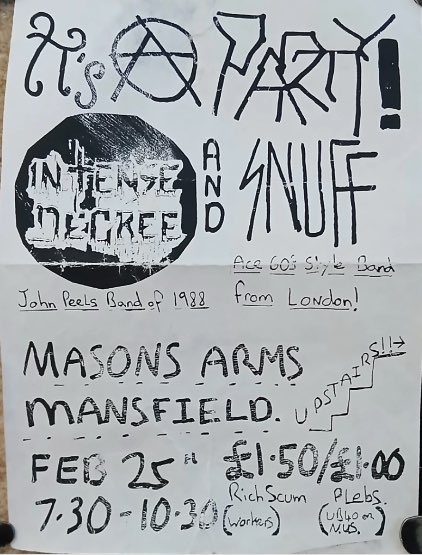 It's A PARTY!
INTENSE DEGREE AND SNUFF
John Peels Band of 1988
Ace 60's Style Band
from London!
MASONS ARMS
MANSFIELD.
UPSTAIRS!!→
FEB 25TH
£1·50/£1·00
7.30-10.30
Rich Scum
(workers)
Plebs.
(UB40 or
NUS.)